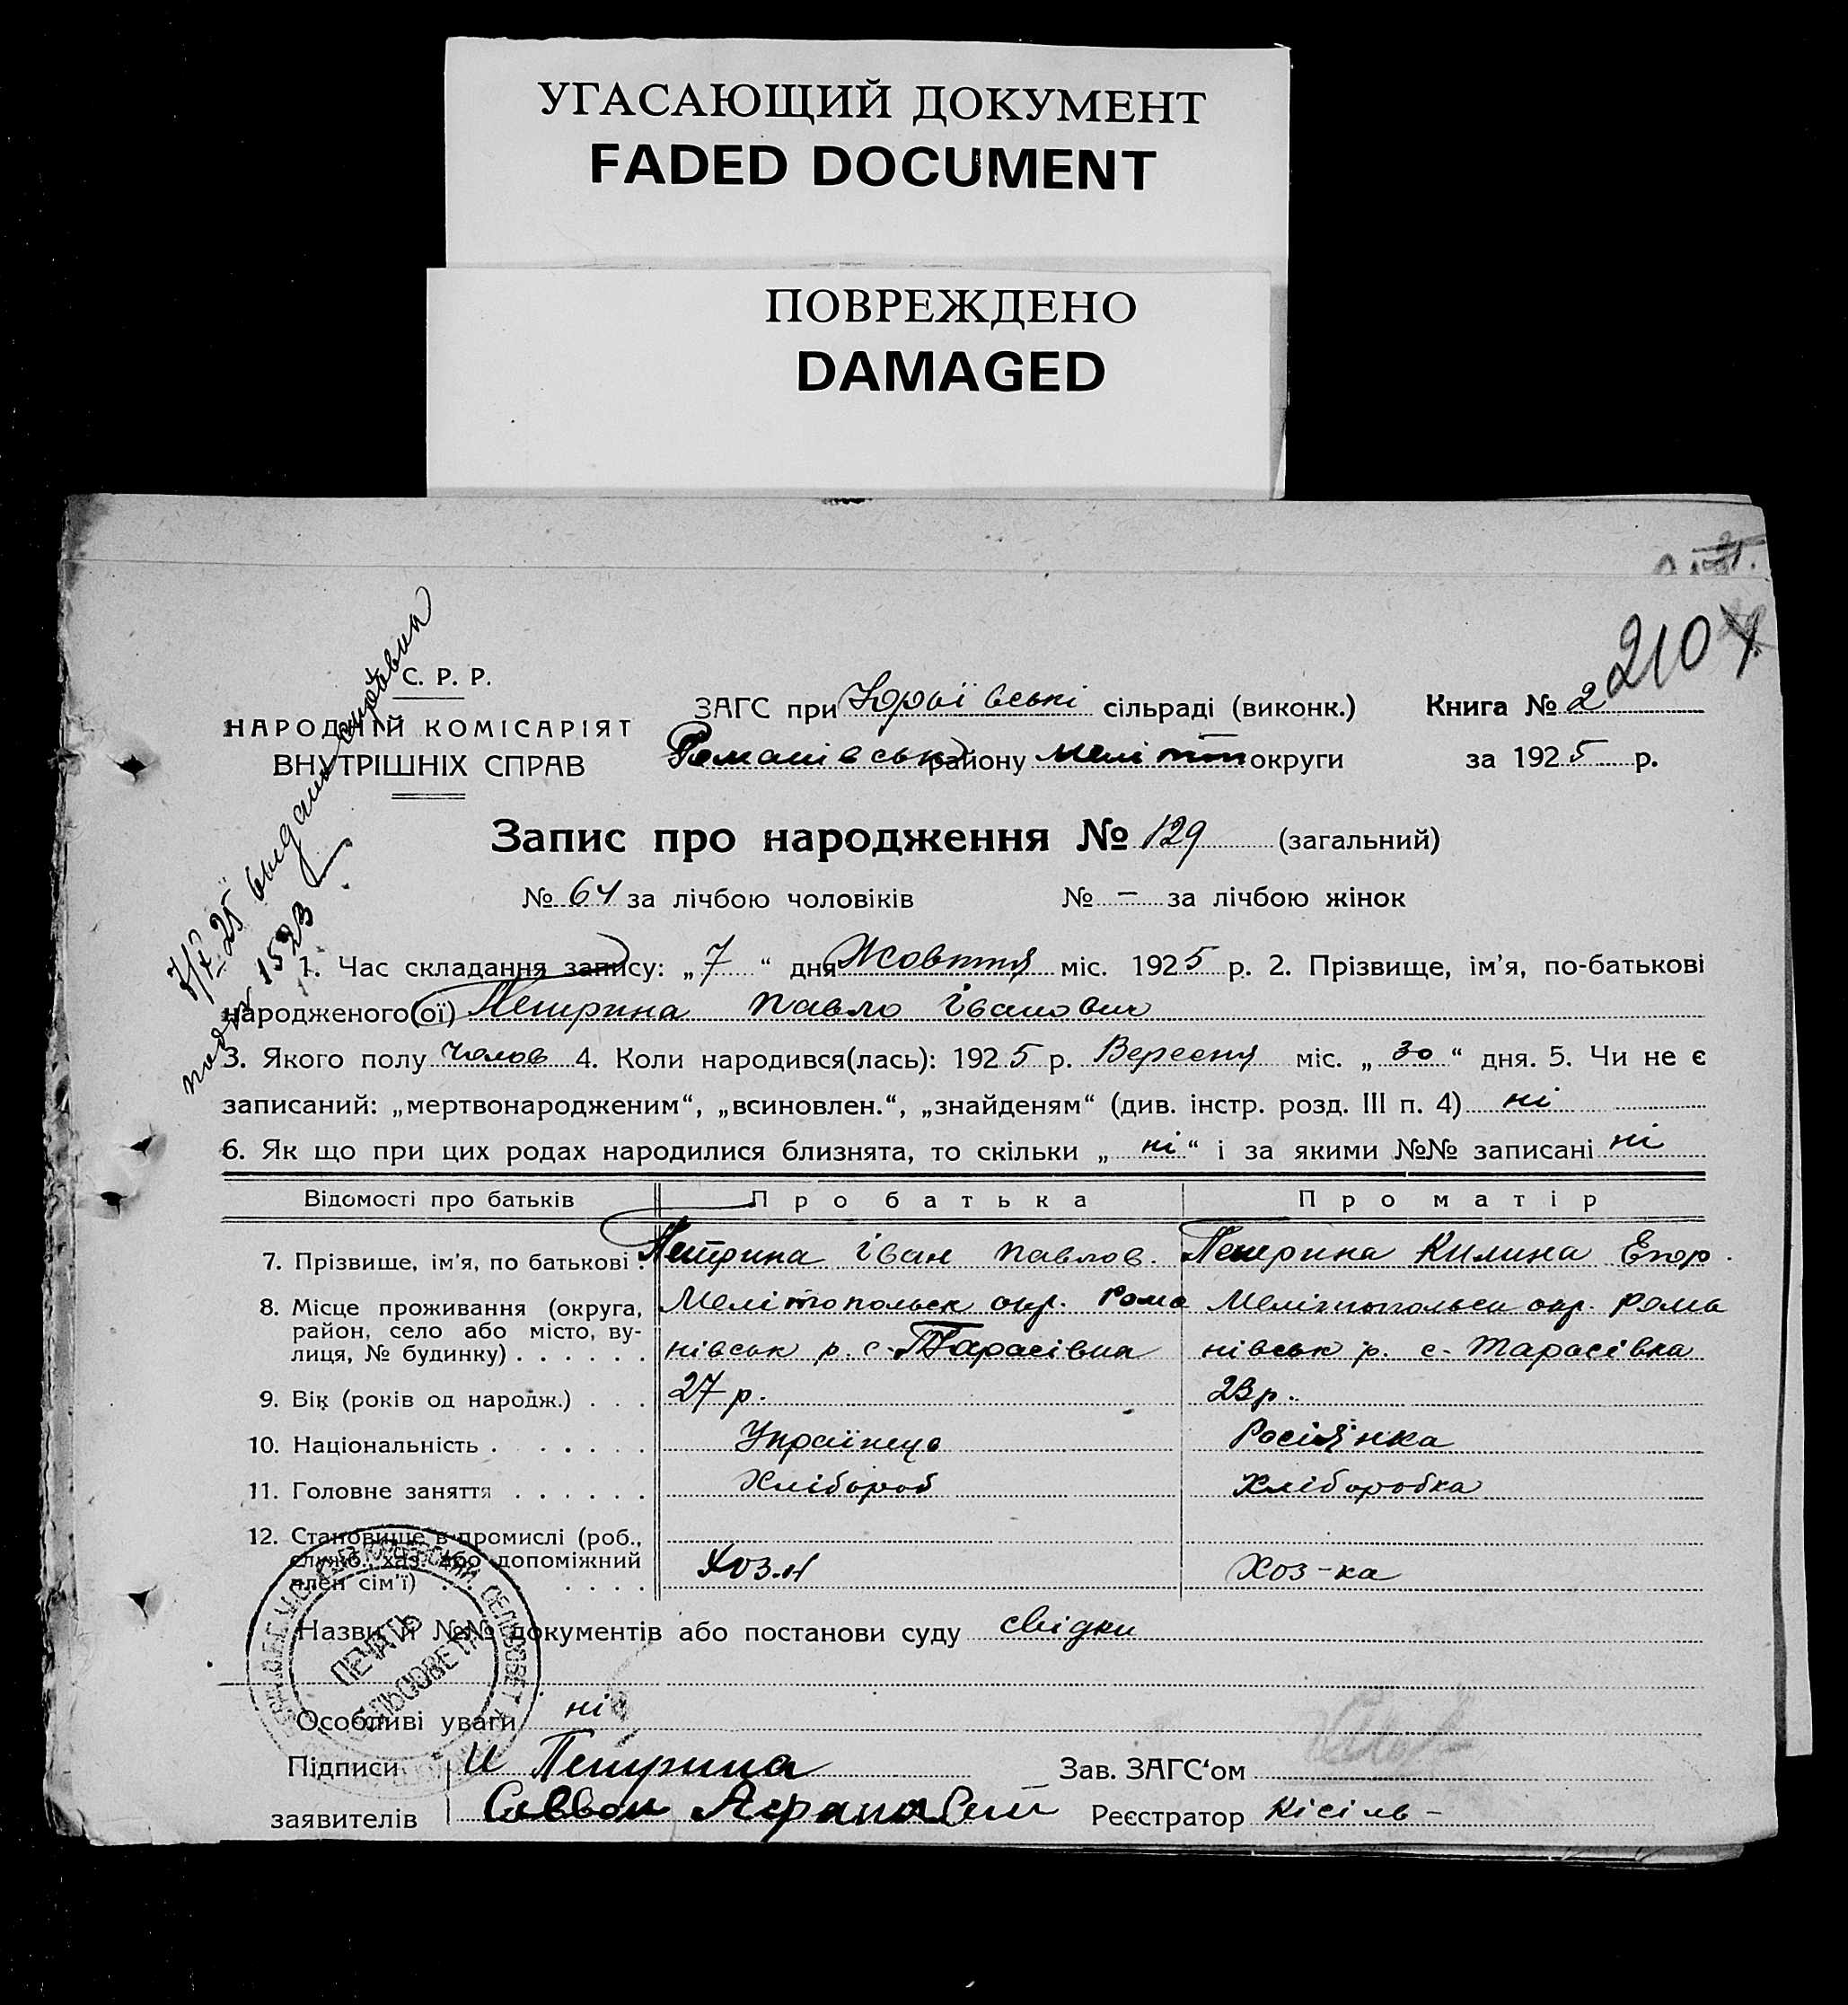 УГАСАЮЩИЙ ДОКУМЕНТ
FADED DOCUMENT
ПОВРЕЖДЕНО
DAMAGED
2107
С. Р. Р.
НАРОДНІЙ КОМІСАРІЯТ
ВНУТРІШНІХ СПРАВ
ЗАГС при Юрьївські сільраді (виконк.) Книга № 2
Романівськ району Меліт округи за 1925 р.
Запис про народження № 129 (загальний)
№ 64 за лічбою чоловіків № – за лічбою жінок
1. Час складання запису: „7“ дня Жовтня міс. 1925 р. 2. Прізвище, ім'я, по-батькові
народженого(ої) Петрина Павло Іванович
3. Якого полу Чолов 4. Коли народився(лась): 1925 р. Вересня міс. „30“ дня. 5. Чи не є
записаний: „мертвонародженим“, „всиновлен.“, „знайденям“ (див. інстр. розд. III п. 4) ні
6. Як що при цих родах народилися близнята, то скільки „ні“ і за якими №№ записані ні
Відомості про батьків Про батька Про матір
7. Прізвище, ім'я, по батькові . Петрина Іван Павлов. Петрина Килина Егор.
8. Місце проживання (округа, Мелітопольск окр. Рома Мелітопольск окр. Рома
район, село або місто, ву-
лиця, № будинку) . . . . . . нівськ р. с. Тарасівка нівськ р. с. Тарасівка
9. Вік (років од народж.) . . . 27 р. 23 р.
10. Національність . . . . . . Українець Росіянка
11. Головне заняття . . . . . . Хлібороб Хліборобка
12. Становище в промислі (роб.,
служб., хаз. або допоміжний
член сім'ї) . . . . . . . Хоз-н Хоз-ка
Назви й №№ документів або постанови суду свідки
Особливі уваги ні
Підписи И Петрина Зав. ЗАГС'ом
заявителів Реєстратор Кісіль -
ПЕЧАТЬ
СЕЛЬСОВЕТА